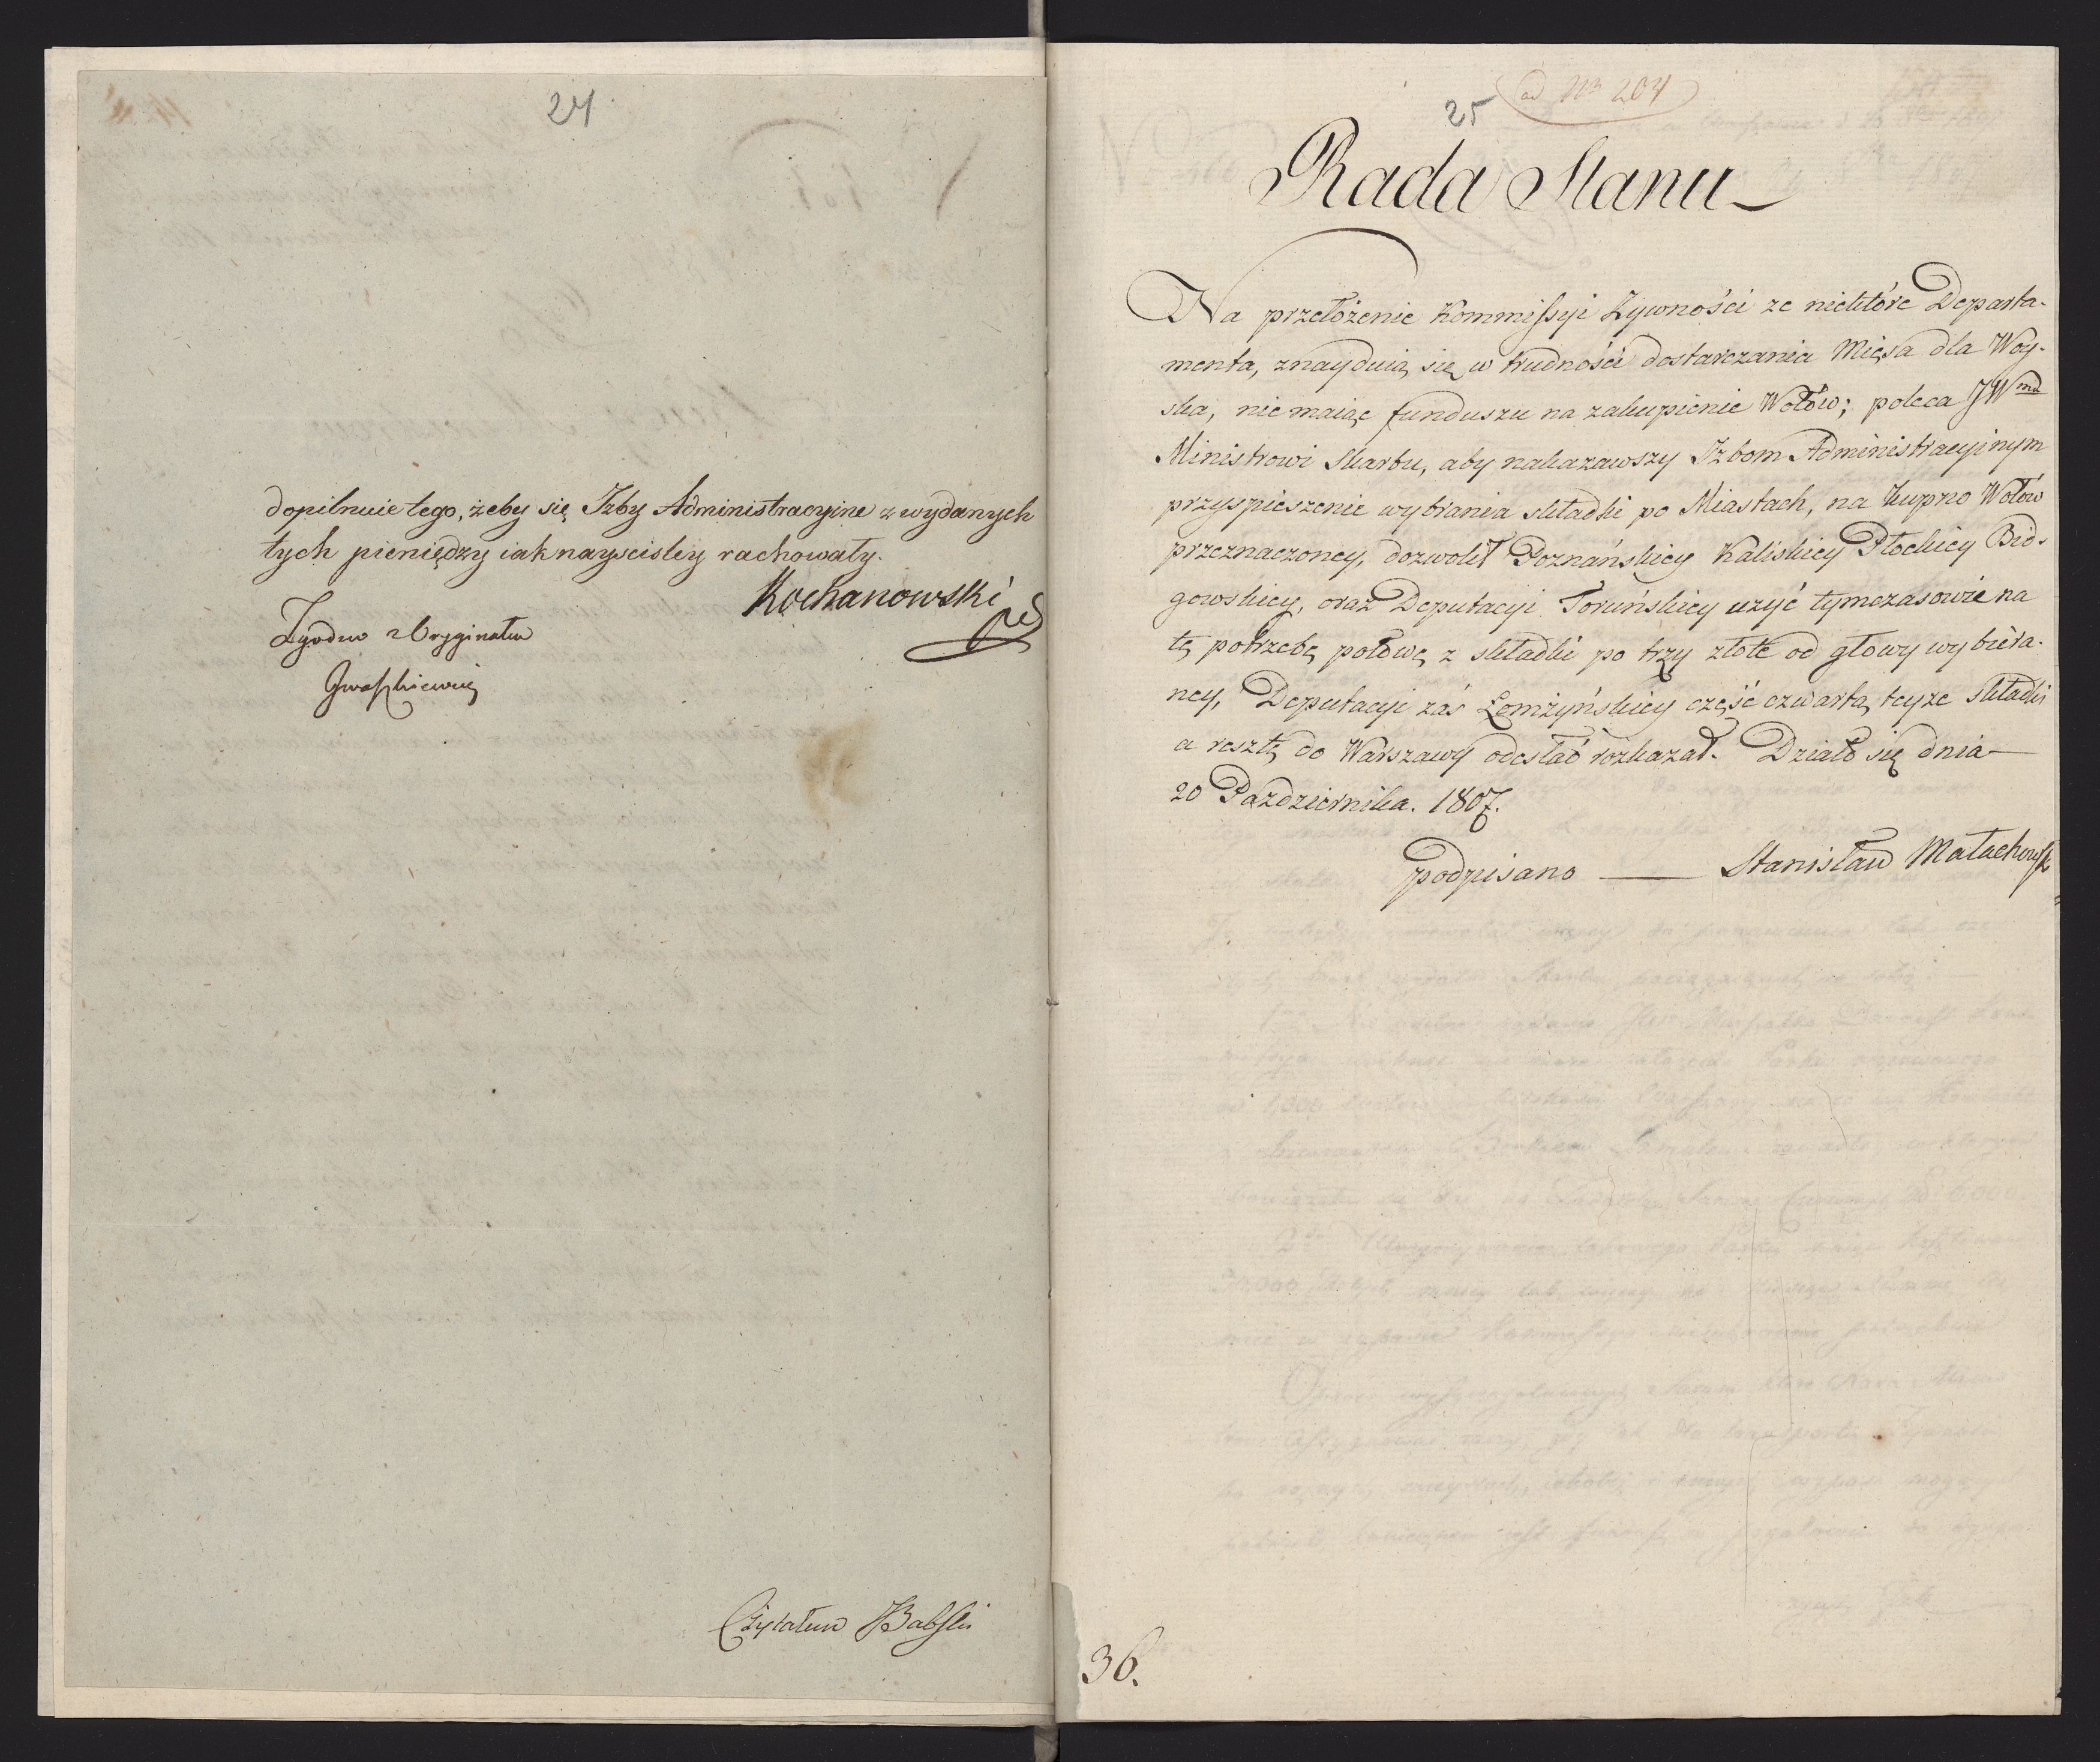 24
dopilnuie tego, żeby się Izby Administracyine z wydanych
tych pieniędzy iak nayscisley rachowały.
Kochanowski
Zgodno z Oryginałem
Gwaszkiewicz
Czytałem Babski
ad Nr 204
25
Rada Stanu
Na przełożenie Kommissyi Żywności ze niektóre Departa-
menta, znayduią się w trudności dostarczania Mięsa dla Woy-
ska, nie maiąc funduszu na zakupienie Wołów; poleca JWmu
Ministrowi Skarbu, aby nakazawszy Izbom Administracyinym
przyspieszenie wybrania składki po Miastach, na kupno Wołów
przeznaczoney, dozwolił Poznańskiey Kaliskiey Płockiey Bid-
gowskiey, oraz Deputacyi Toruńskiey uzyć tymczasowie na
tę potrzebę połowę z składki po trzy złote od głowy wybiera-
ney, Deputacyi zaś Łomżyńskiey część czwartą teyze składki
a resztę do Warszawy odesłać rozkazał. Działo się dnia
20 Pazdziernika. 1807.
podpisano — Stanisław Małachowsk
36.